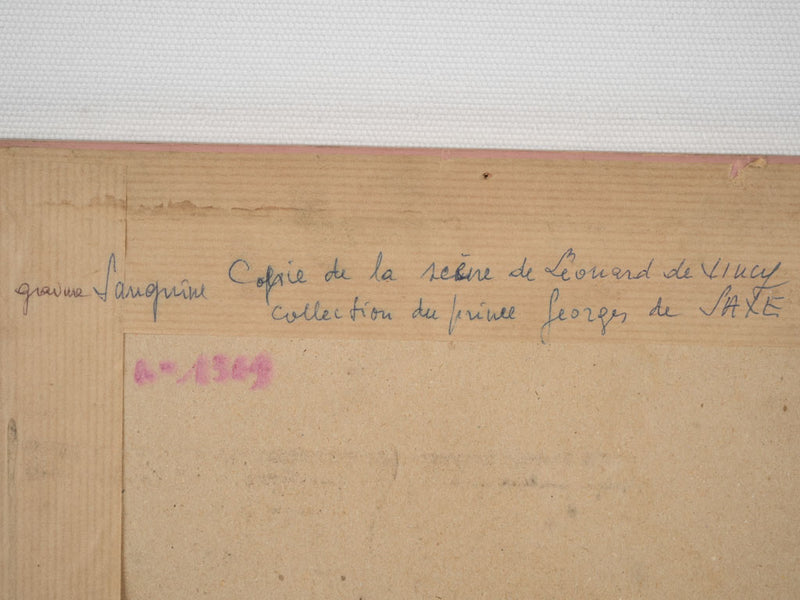 gravure Sanguine Copie de la scène de Léonard de VINCY
collection du prince Georges de SAXE